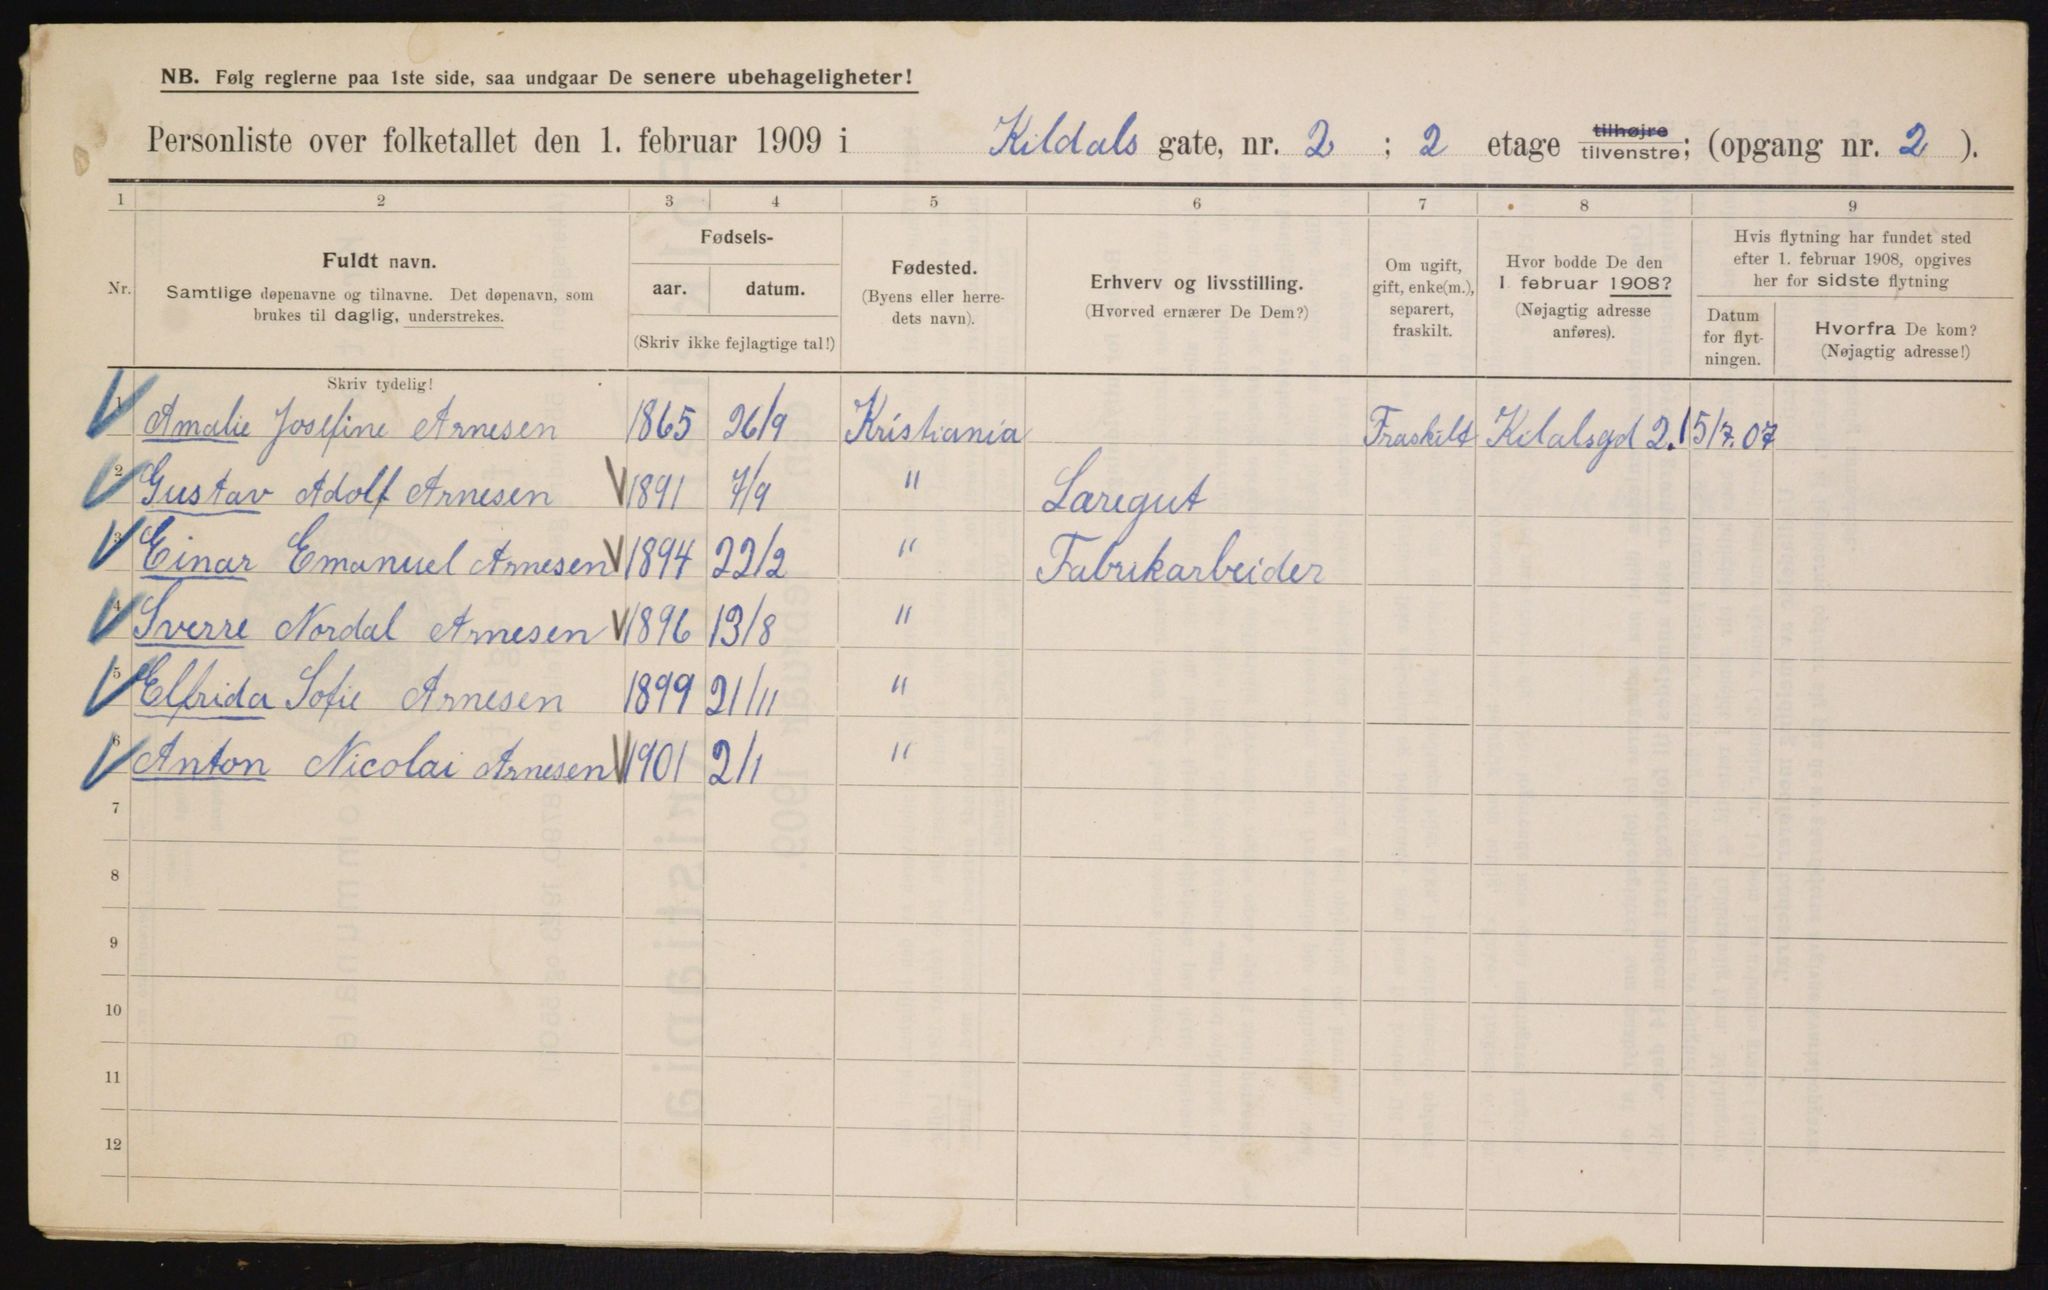 NB. Følg reglerne paa 1ste side, saa undgaar De senere ubehageligheter!
Personliste over folketallet den 1. februar 1909 i Kildals gate, nr. 2 ; 2 etage tilhøjre tilvenstre; (opgang nr. 2 ).
1 2 3 4 5 6 7 8 9
Nr.
Fuldt navn.
Samtlige døpenavne og tilnavne. Det døpenavn, som
brukes til daglig, understrekes.
Fødsels-
aar. datum.
(Skriv ikke fejlagtige tal!)
Fødested.
(Byens eller herre-
dets navn).
Erhverv og livsstilling.
(Hvorved ernærer De Dem?)
Om ugift,
gift, enke(m.),
separert,
fraskilt.
Hvor bodde De den
1. februar 1908?
(Nøjagtig adresse
anføres).
Hvis flytning har fundet sted
efter 1. februar 1908, opgives
her for sidste flytning
Datum
for flyt-
ningen.
Hvorfra De kom?
(Nøjagtig adresse!)
Skriv tydelig!
1 Amalie Josefine Arnesen 1865 26/9 Kristiania Fraskilt Kilalsgd 2. 15/7.07
2 Gustav Adolf Arnesen 1891 7/9 " Læregut
3 Einar Emanuel Arnesen 1894 22/2 " Fabrikarbeider
4 Sverre Nordal Arnesen 1896 13/8 "
5 Elfrida Sofie Arnesen 1899 21/11 "
6 Anton Nicolai Arnesen 1901 2/1 "
7
8
9
10
11
12